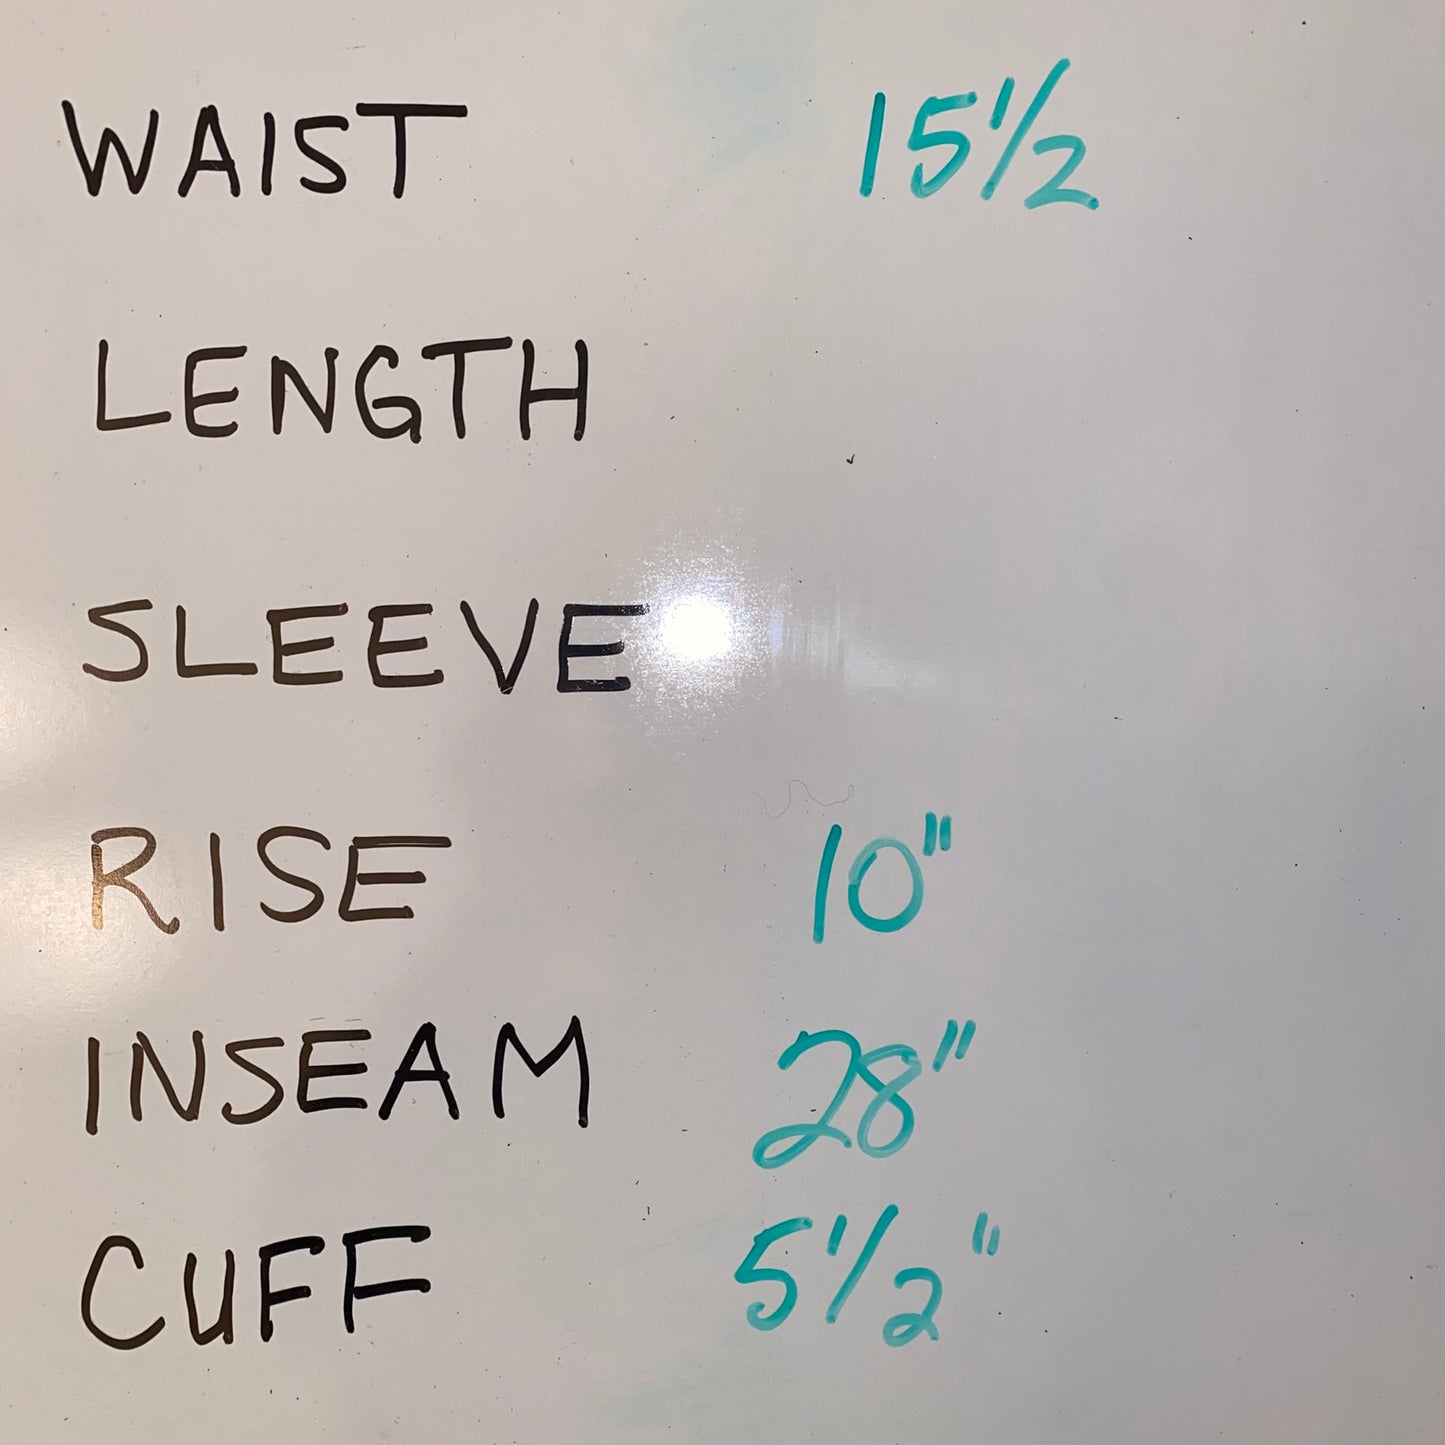 WAIST 15 1/2
LENGTH
SLEEVE
RISE 10"
INSEAM 28"
CUFF 5 1/2"